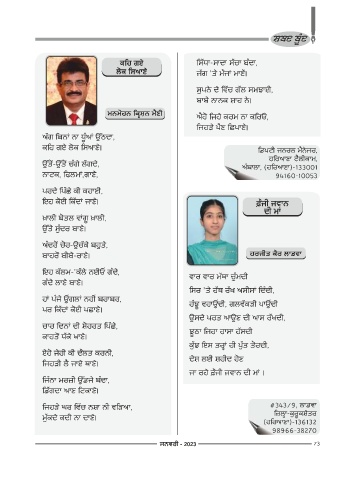 ਸ਼ਬਦ ਬੂੰਦ
ਕਹਿ ਗਏ
ਲੋਕ ਸਿਆਣੇ
ਮਨਮੋਹਨ ਕ੍ਰਿਸ਼ਨ ਸੈਣੀ
ਅੱਗ ਬਿਨਾਂ ਨਾ ਧੂੰਆਂ ਉੱਠਦਾ,
ਕਹਿ ਗਏ ਲੋਕ ਸਿਆਣੇ।
ਉੱਤੋਂ-ਉੱਤੋਂ ਚੰਗੇ ਲੱਗਦੇ,
ਨਾਟਕ, ਫਿਲਮਾਂ,ਗਾਣੇ,
ਪਰਦੇ ਪਿੱਛੇ ਕੀ ਕਹਾਣੀ,
ਇਹ ਕੋਈ ਕਿੱਦਾਂ ਜਾਣੇ।
ਖ਼ਾਲੀ ਬੋਤਲ ਵਾਂਗੂ ਖ਼ਾਲੀ,
ਉੱਤੋਂ ਸੁੰਦਰ ਬਾਣੇ।
ਅੰਦਰੋਂ ਚੋਰ-ਉਚੱਕੇ ਬਹੁਤੇ,
ਬਾਹਰੋਂ ਬੀਬੇ-ਰਾਣੇ।
ਇਹ ਕੱਲਮ-'ਕੱਲੇ ਨਈਓਂ ਗੰਦੇ,
ਗੰਦੇ ਲਾਣੇ ਬਾਣੇ।
ਹਾਂ ਪੰਜੇ ਉਂਗਲਾਂ ਨਹੀਂ ਬਰਾਬਰ,
ਪਰ ਕਿੱਦਾਂ ਕੋਈ ਪਛਾਣੇ।
ਚਾਰ ਦਿਨਾਂ ਦੀ ਸ਼ੋਹਰਤ ਪਿੱਛੇ,
ਕਾਹਤੋਂ ਧੱਕੇ ਖਾਣੇ।
ਏਹੋ ਜੇਹੀ ਕੀ ਦੌਲਤ ਕਰਨੀ,
ਜਿਹੜੀ ਲੈ ਜਾਏ ਥਾਣੇ।
ਜਿੰਨਾ ਮਰਜ਼ੀ ਉੱਡਜੇ ਬੰਦਾ,
ਡਿੱਗਦਾ ਆਣ ਟਿਕਾਣੇ।
ਜਿਹੜੇ ਘਰ ਵਿੱਚ ਨਸ਼ਾ ਨੀ ਵੜਿਆ,
ਮੁੱਕਦੇ ਕਦੀ ਨਾ ਦਾਣੇ।
ਸਿੱਧਾ-ਸਾਦਾ ਸੱਚਾ ਬੰਦਾ,
ਜੱਗ 'ਤੇ ਮੌਜਾਂ ਮਾਣੇ।
ਸੁਪਨੇ ਦੇ ਵਿੱਚ ਗੱਲ ਸਮਝਾਈ,
ਬਾਬੇ ਨਾਨਕ ਸ਼ਾਹ ਨੇ।
ਐਹੋ ਜਿਹੇ ਕਰਮ ਨਾ ਕਰਿਓ,
ਜਿਹੜੇ ਪੈਣ ਛਿਪਾਣੇ।
ਡਿਪਟੀ ਜਨਰਲ ਮੈਨੇਜਰ,
ਹਰਿਆਣਾ ਟੈਲੀਕਾਮ,
ਅੰਬਾਲਾ, (ਹਰਿਆਣਾ)-133001
94160-10053
ਫ਼ੌਜੀ ਜਵਾਨ
ਦੀ ਮਾਂ
ਹਰਜੀਤ ਕੌਰ ਲਾਡਵਾ
ਵਾਰ ਵਾਰ ਮੱਥਾ ਚੁੰਮਦੀ
ਸਿਰ 'ਤੇ ਹੱਥ ਰੱਖ ਅਸੀਸਾਂ ਦਿੰਦੀ,
ਹੰਝੂ ਵਹਾਉਂਦੀ, ਗਲਵੱਕੜੀ ਪਾਉਂਦੀ
ਉਸਦੇ ਪਰਤ ਆਉਣ ਦੀ ਆਸ ਰੱਖਦੀ,
ਝੂਠਾ ਜਿਹਾ ਹਾਸਾ ਹੱਸਦੀ
ਕੁੱਝ ਇਸ ਤਰ੍ਹਾਂ ਹੀ ਪੁੱਤ ਤੋਰਦੀ,
ਦੇਸ਼ ਲਈ ਸ਼ਹੀਦ ਹੋਣ
ਜਾ ਰਹੇ ਫ਼ੌਜੀ ਜਵਾਨ ਦੀ ਮਾਂ ।
#343/9, ਲਾਡਵਾ
ਜ਼ਿਲ੍ਹਾ-ਕੁਰੂਕਸ਼ੇਤਰ
(ਹਰਿਆਣਾ)-136132
98966-38270
ਜਨਵਰੀ - 2023
73